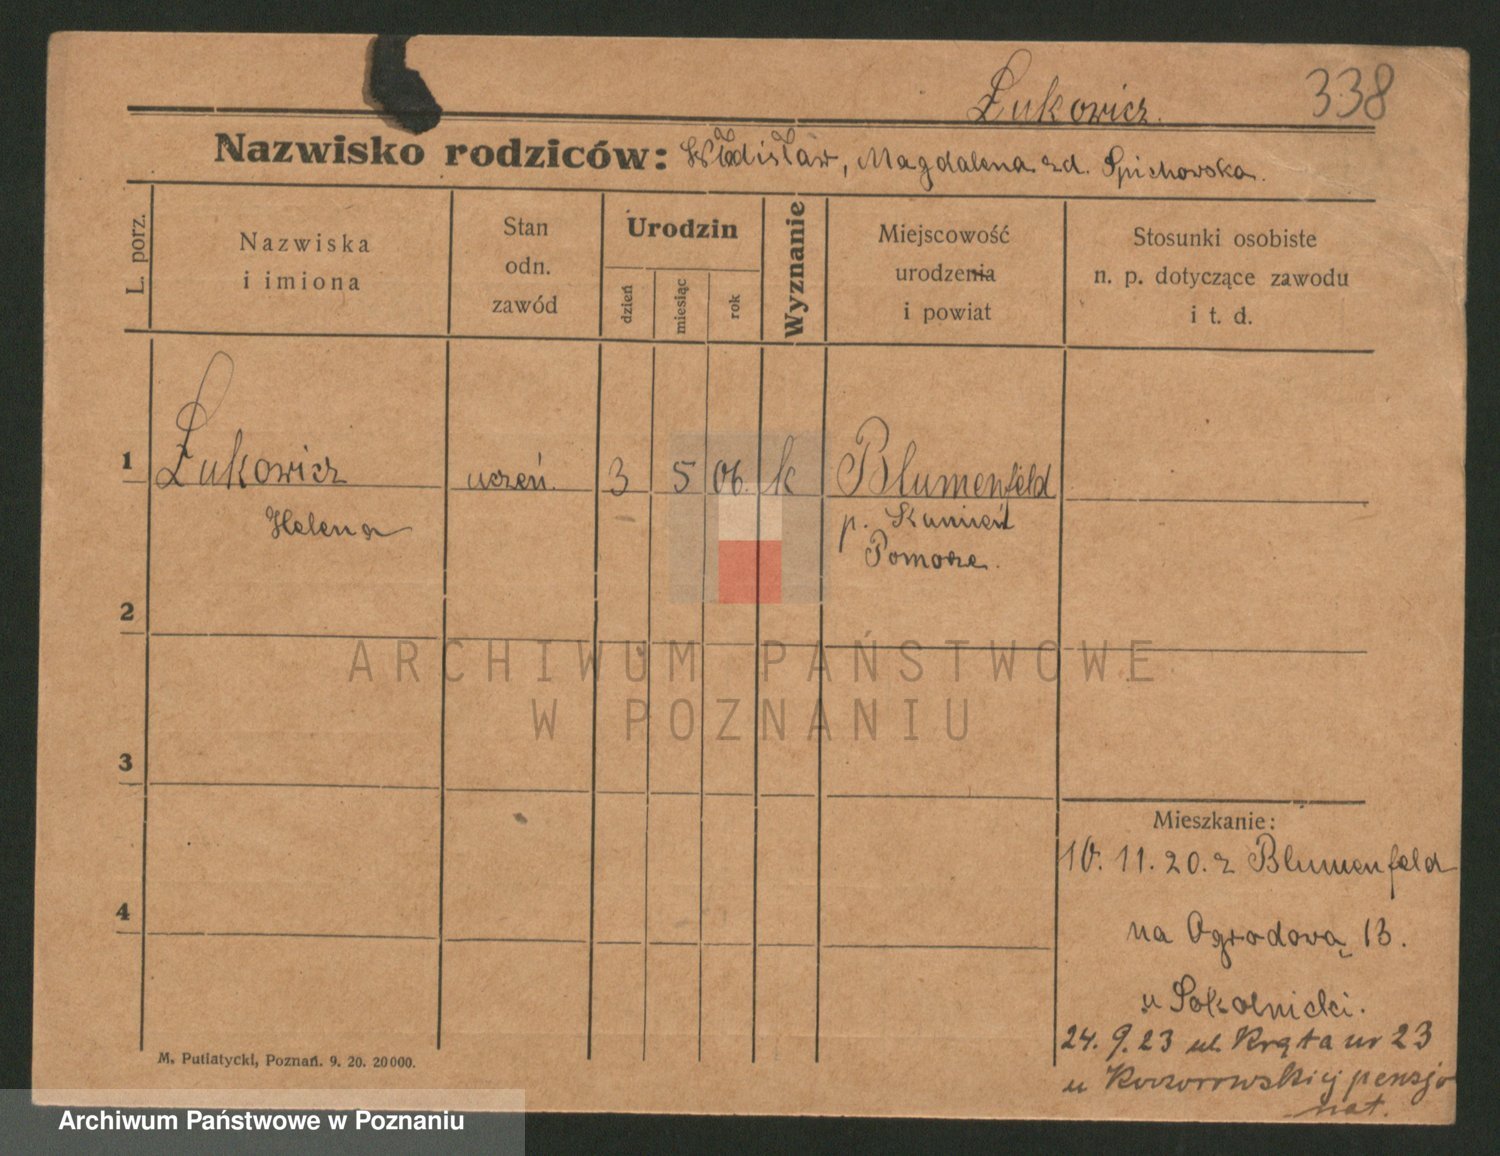 Łukowicz.
338
Nazwisko rodziców: Władisław, Magdalena zd. Spichowska.
L. porz.
Nazwiska
i imiona
Stan
odn.
zawód
Urodzin
dzień
miesiąc
rok
Wyznanie
Miejscowość
urodzenia
i powiat
Stosunki osobiste
n. p. dotyczące zawodu
i t. d.
1 Łukowicz uczeń. 3 5 06. k Blumenfeld
Helena p. Kamień
Pomorze.
2
3
4
Mieszkanie:
10. 11. 20. z Blumenfeld
na Ogrodową 13.
u Sokolnicki.
24. 9. 23 ul. Kręta nr 23
u pensjo
nat.
M. Putiatycki, Poznań. 9. 20. 20000.
ARCHIWUM PAŃSTWOWE
W POZNANIU
Archiwum Państwowe w Poznaniu